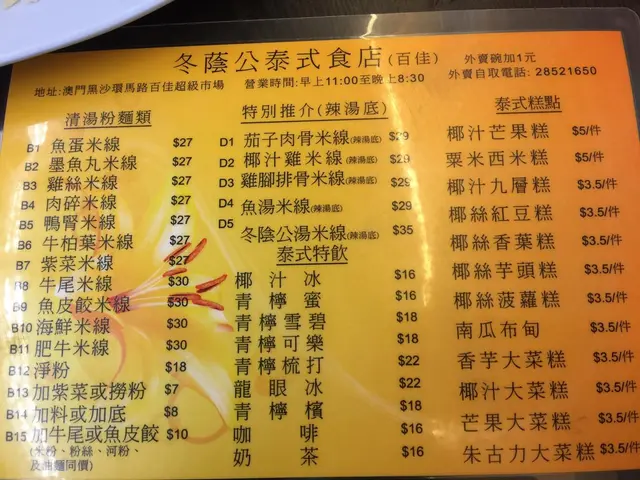 冬蔭公泰式食店(百佳)
外賣碗加1元
地址:澳門黑沙環馬路百佳超級市場
營業時間:早上11:00至晚上8:30
外賣自取電話: 28521650
清湯粉麵類
B1 魚蛋米線 $27
B2 墨魚丸米線 $27
B3 雞絲米線 $27
B4 肉碎米線 $27
B5 鴨腎米線 $27
B6 牛柏葉米線 $27
B7 紫菜米線 $27
B8 牛尾米線 $30
B9 魚皮餃米線 $30
B10 海鮮米線 $30
B11 肥牛米線 $30
B12 淨粉 $18
B13 加紫菜或撈粉 $7
B14 加料或加底 $8
B15 加牛尾或魚皮餃 $10
(米粉、粉絲、河粉、
及油麵同價)
特別推介(辣湯底)
D1 茄子肉骨米線(辣湯底) $29
D2 椰汁雞米線(辣湯底) $29
D3 雞腳排骨米線(辣湯底) $29
D4 魚湯米線(辣湯底) $29
D5 冬陰公湯米線(辣湯底) $35
泰式特飲
椰汁冰 $16
青檸蜜 $16
青檸雪碧 $18
青檸可樂 $18
青檸梳打 $22
龍眼冰 $22
青檸檳 $18
咖啡 $16
奶茶 $16
泰式糕點
椰汁芒果糕 $5/件
粟米西米糕 $5/件
椰汁九層糕 $3.5/件
椰絲紅豆糕 $3.5/件
椰絲香葉糕 $3.5/件
椰絲芋頭糕 $3.5/件
椰絲菠蘿糕 $3.5/件
南瓜布甸 $3.5/件
香芋大菜糕 $3.5/件
椰汁大菜糕 $3.5/件
芒果大菜糕 $3.5/件
朱古力大菜糕 $3.5/件